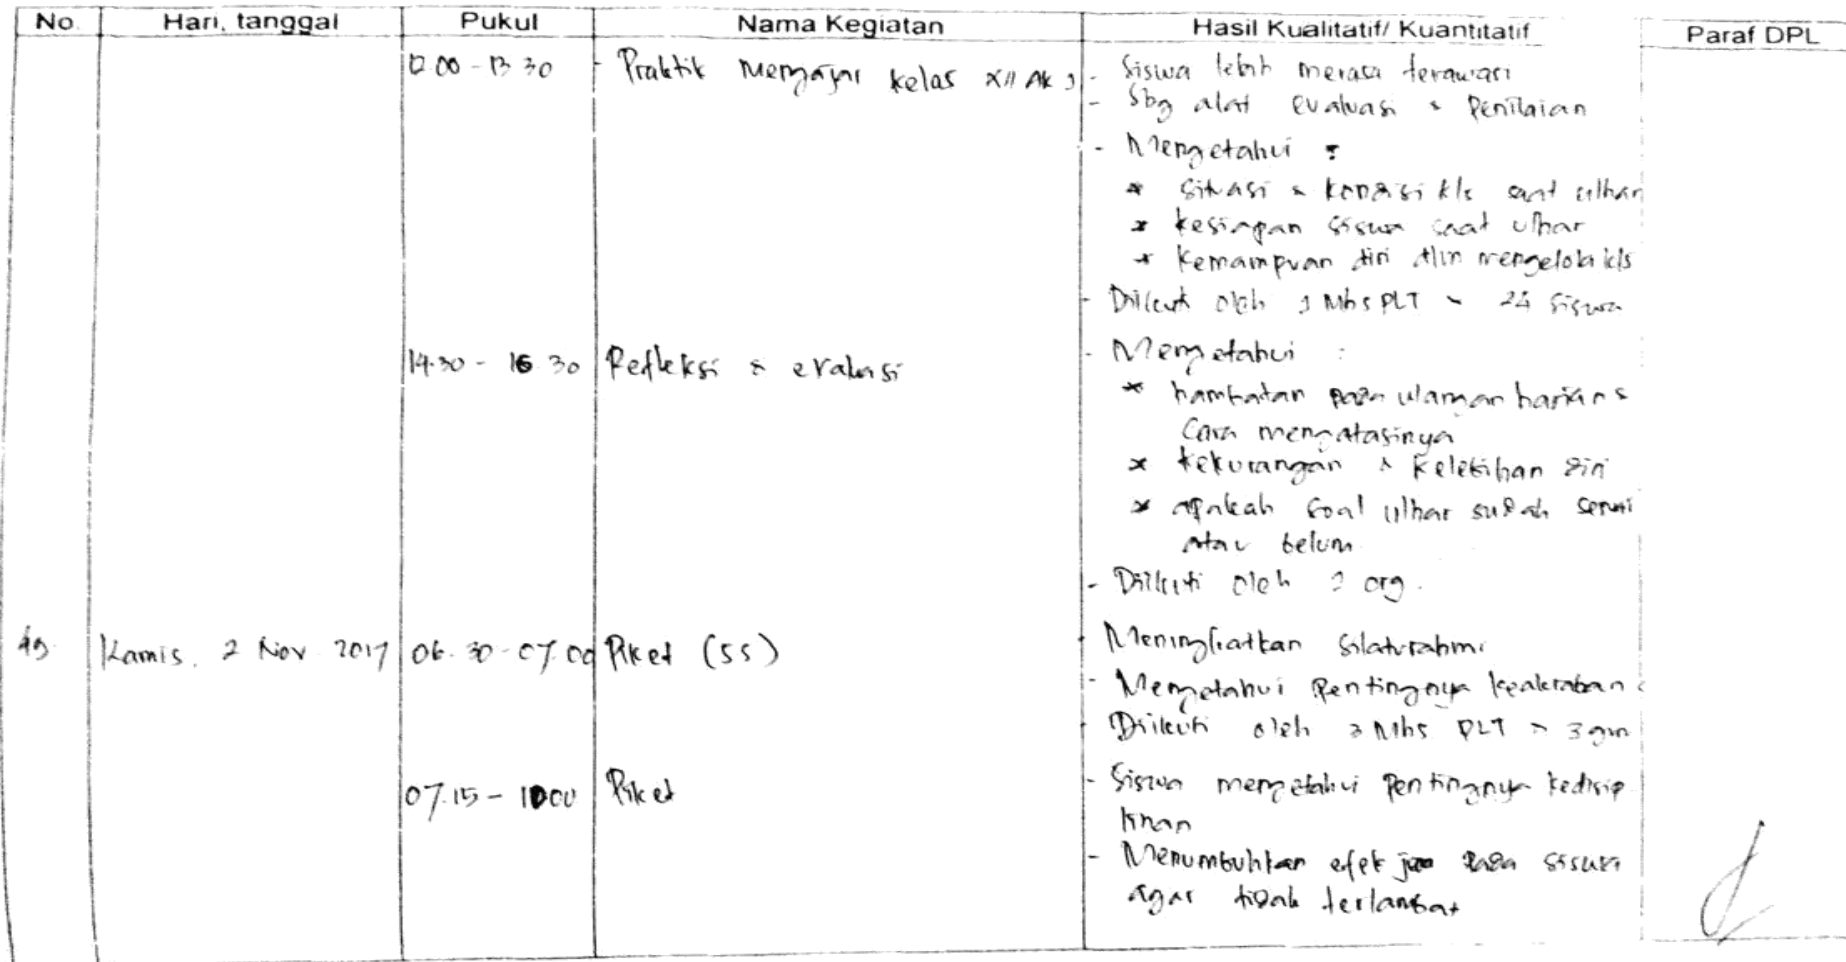 No. Hari, tanggal Pukul Nama Kegiatan Hasil Kualitatif/ Kuantitatif Paraf DPL
12.00 - 13 30 - Praktik Mengajar kelas XII AK - Siswa lebih merasa terawasi
- Sbg alat evaluasi & Penilaian
- Mengetahui :
* Situasi & kondisi kls saat ulhar
* kesiapan siswa saat ulhar
* kemampuan diri dlm mengelola kls
- Diikuti oleh 1 Mhs PLT & 24 Siswa
14.30 - 16.30 Refleksi & evaluasi - Mengetahui :
* hambatan pada ulangan harian &
Cara mengatasinya
* kekurangan & kelebihan diri
* apakah soal ulhar sudah sesuai
atau belum.
- Diikuti oleh org.
Kamis, 2 Nov 2017 06.30 - 07.00 Piket (5S) - Meningkatkan silaturahmi
- Mengetahui Pentingnya keakraban
- Diikuti oleh 3 Mhs PLT & 3 guru
07.15 - 1000 Piket - Siswa mengetahui Pentingnya kedisip
linan
- Menumbuhkan efek jera pada siswa
agar tidak terlambat